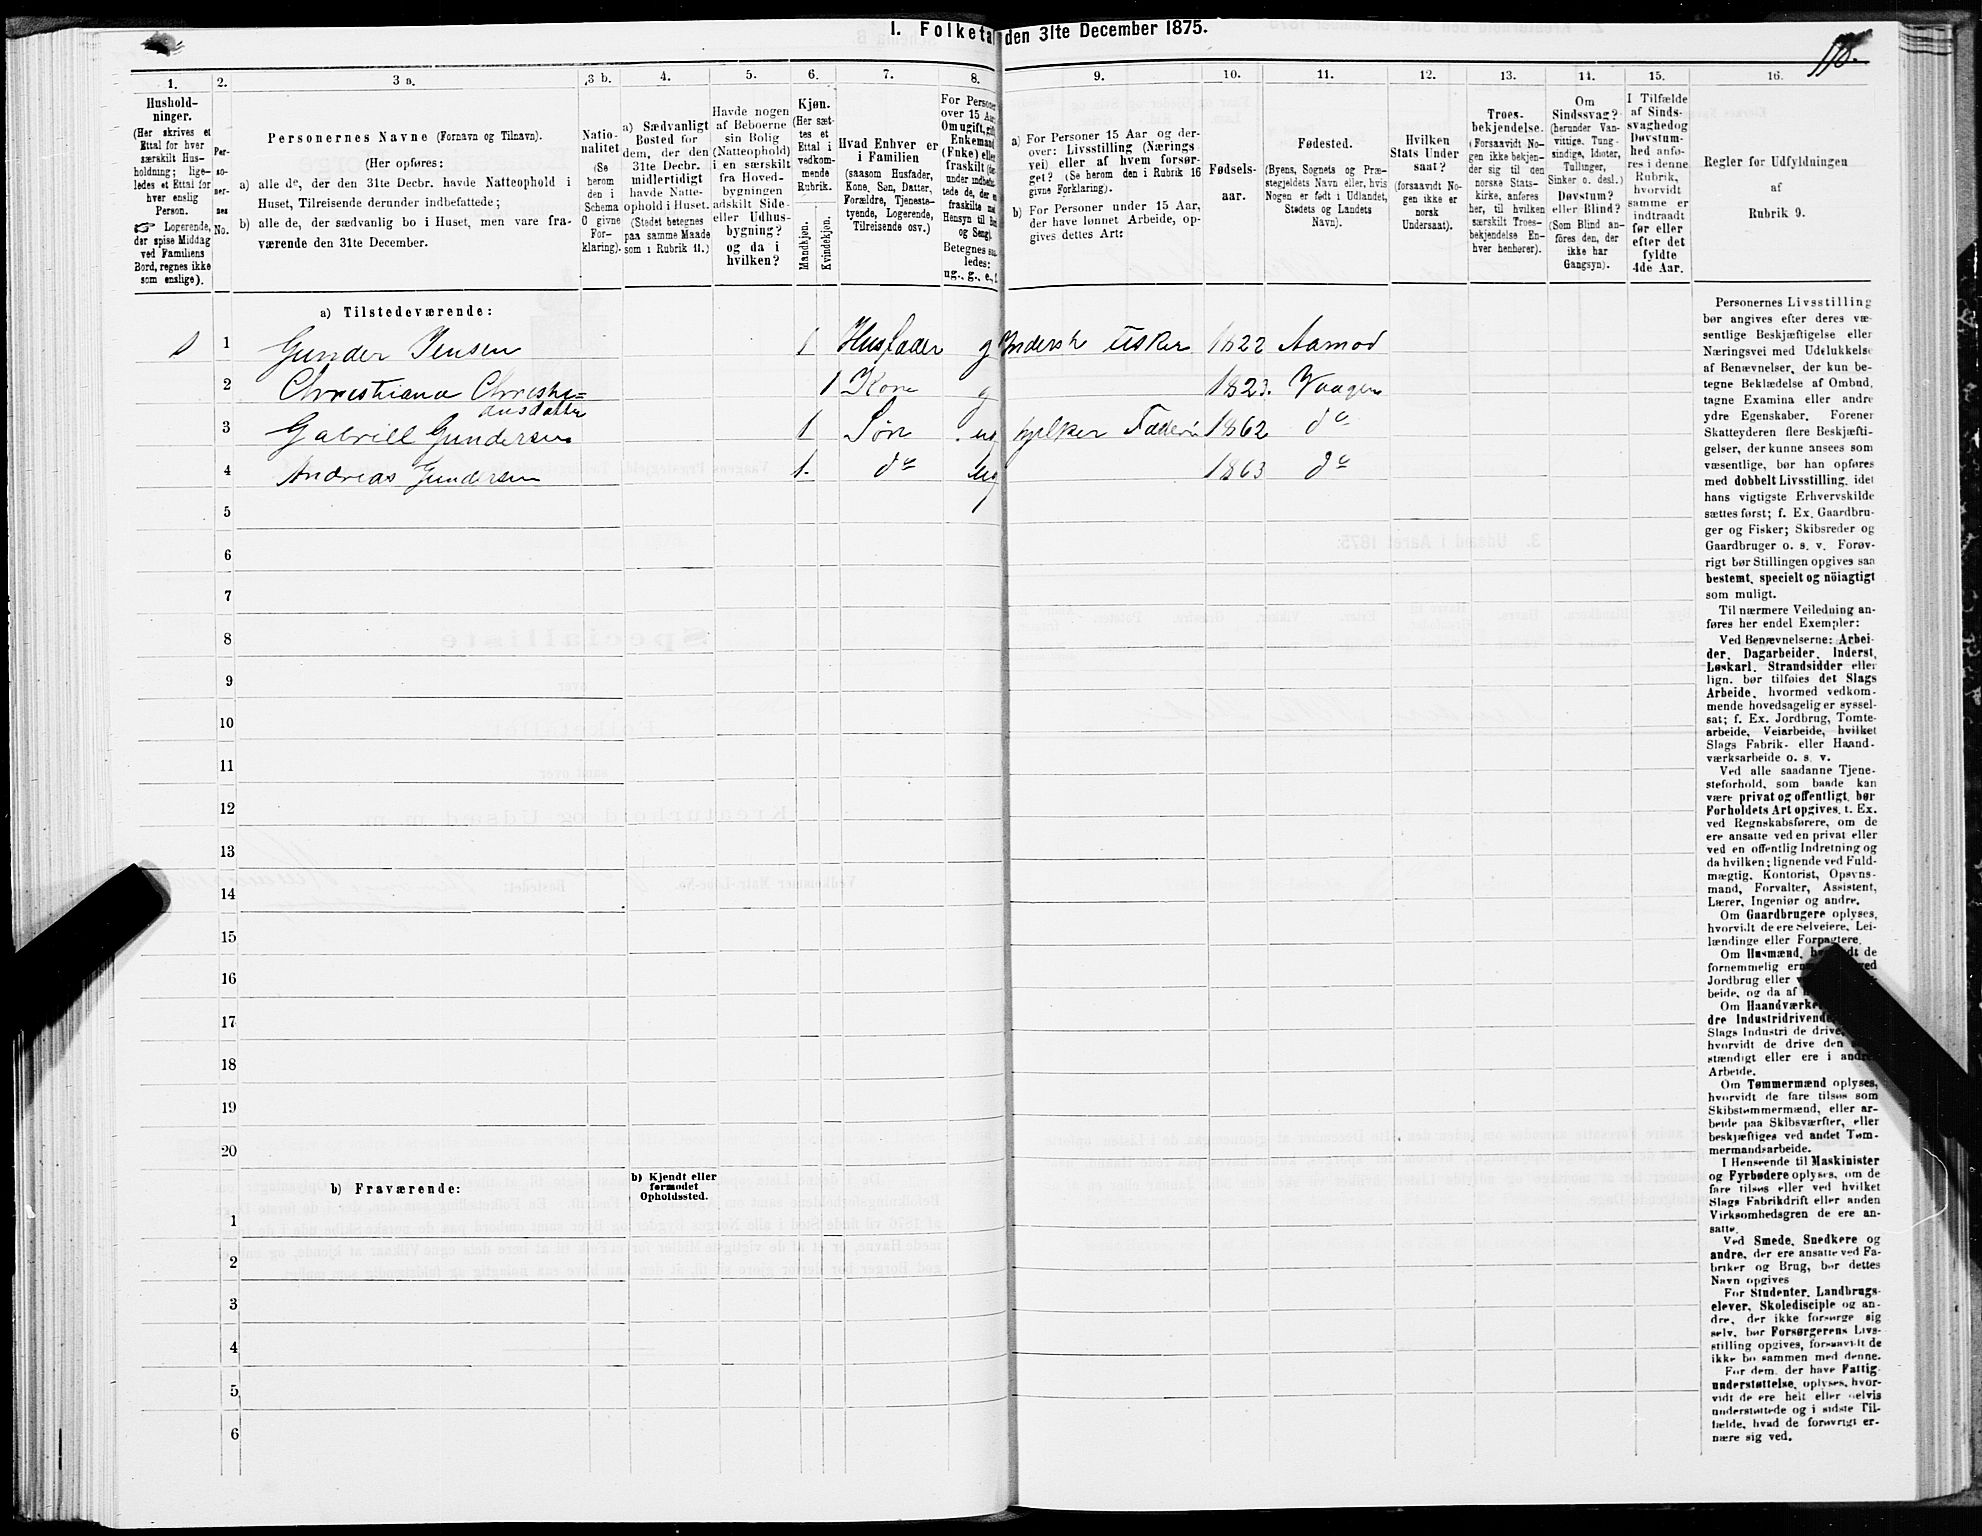 I. Folketa den 31te December 1875.
1. 2. 3 a. 3 b. 4. 5. 6. 7. 8. 9. 10. 11. 12. 13. 14. 15. 16.
Hushold-
ninger.
(Her skrives et
Ettal for hver
særskilt Hus-
holdning; lige-
ledes et Ettal for
hver enslig
Person.
Logerende,
der spise Middag
ved Familiens
Bord, regnes ikke
som enslige).
Per-
so-
ner-
nes
No.
Personernes Navne (Fornavn og Tilnavn).
(Her opføres:
a) alle de, der den 31te Decbr. havde Natteophold i
Huset, Tilreisende derunder indbefattede;
b) alle de, der sædvanlig bo i Huset, men vare fra-
værende den 31te December.
Natio-
nalitet
(Se
herom
den i
Schema
O givne
For-
klaring).
a) Sædvanligt
Bosted for
dem, der den
31te Decbr.
midlertidigt
havde Natte-
ophold i Huset.
(Stedet betegnes
paa samme Maade
som i Rubrik 11.)
Havde nogen
af Beboerne
sin Bolig
(Natteophold)
i en særskilt
fra Hoved-
bygningen
adskilt Side-
eller Udhus-
bygning?
og da i
hvilken?
Kjøn.
(Her sæt-
tes et
Ettal i
vedkom-
mende
Rubrik.
Mandkjøn.
Kvindekjøn.
Hvad Enhver er
i Familien
(saasom Husfader,
Kone, Søn, Datter,
Forældre, Tjeneste-
tyende, Logerende,
Tilreisende osv.)
For Personer
over 15 Aar:
Om ugift, gift,
Enkemand
(Enke) eller
fraskilt
Betegnes saa-
ledes:
ug., g., e., f.
a) For Personer 15 Aar og der-
over: Livsstilling (Nærings
vei) eller af hvem forsør-
get? (Se herom den i Rubrik 16
givne Forklaring).
b) For Personer under 15 Aar,
der have lønnet Arbeide, op-
gives dettes Art:
Fødsels-
aar.
Fødested.
(Byens, Sognets og Præ-
stegjeldets Navn eller, hvis
Nogen er født i Udlandet,
Stedets og Landets
Navn).
Hvilken
Stats Under
saat?
(forsaavidt No-
gen ikke er
norsk
Undersaat).
Troes-
bekjendelse.
(Forsaavidt No-
gen ikke bekjen-
der sig til den
norske Stats-
kirke, anføres
her, til hvilken
særskilt Troes-
bekjendelse En-
hver henhører).
Om
Sindssvag?
(herunder Van-
vittige, Tung-
sindige, Idioter,
Tullinger,
Sinker o. desl.)
Døvstum?
eller Blind?
(Som Blind an-
føres den, der
ikke har
Gangsyn).
I Tilfælde
af Sinds-
svaghed og
Døvstum-
hed anfø-
res i denne
Rubrik,
hvorvidt
samme er
indtraadt
før eller
efter det
fyldte
4de Aar.
Regler for Udfyldningen
af
Rubrik 9.
a) Tilstedeværende:
1 Gunder Jensen 1 Husfader g Inderst Fisker 1822 Aamod
2 Christiana Christi= 1 Kone g 1823. Vaagen
ansdatter
3 Gabriell Gundersen 1 Søn ug hjelper Faderen 1862 do
4 Andreas Gundersen 1 do ug 1863 do
5
6
7
8
9
10
11
12
13
14
15
16
17
18
19
20
b) Fraværende:
b) Kjendt eller
formodet
Opholdssted.
1
2
3
4
5
6
Personernes Livsstilling
bør angives efter deres væ-
sentlige Beskjæftigelse eller
Næringsvei med Udelukkelse
af Benævnelser, der kun be-
tegne Beklædelse af Ombud,
tagne Examina eller andre
ydre Egenskaber. Forener
Skatteyderen flere Beskjæfti-
gelser, der kunne ansees som
væsentlige, bør han opføres
med dobbelt Livsstilling, idet
hans vigtigste Erhvervskilde
sættes først; f. Ex. Gaardbru-
ger og Fisker; Skibsreder og
Gaardbruger o. s. v. Forøv-
rigt bør Stillingen opgives saa
bestemt, specielt og nöiagtigt
som muligt.
Til nærmere Veiledning an-
føres her endel Exempler:
Ved Benævnelserne: Arbei-
der, Dagarbeider, Inderst,
Løskarl, Strandsidder eller
lign. bør tilføies det Slags
Arbeide, hvormed vedkom-
mende hovedsagelig er syssel-
sat; f. Ex. Jordbrug, Tomte-
arbeide, Veiarbeide, hvilket
Slags Fabrik- eller Haand-
værksarbeide o. s. v.
Ved alle saadanne Tjene-
steforhold, som baade kan
være privat og offentligt, bør
Forholdets Art opgives, t. Ex.
ved Regnskabsførere, om de
ere ansatte ved en privat eller
ved en offentlig Indretning og
da hvilken; lignende ved Fuld-
mægtig, Kontorist, Opsyns-
mand, Forvalter, Assistent,
Lærer, Ingeniør og andre.
Om Gaardbrugere oplyses,
hvorvidt de ere Selveiere, Lei-
lændinge eller Forpagtere.
Om Husmænd,
fornemmelig
Jordbrug eller
beide, og da af
Om Haandværke
dre Industridrivende
Slags Industri de drive,
hvorvidt de drive den
stændigt eller ere i andres
Arbeide.
Om Tømmermænd oplyses,
hvorvidt de fare tilsøs som
Skibstømmermænd, eller ar-
beide paa Skibsværfter, eller
beskjæftiges ved andet Tøm-
mermandsarbeide.
I Henseende til Maskinister
og Fyrbødere oplyses, om de
fare tilsøs eller ved hvilket
Slags Fabrikdrift eller anden
Virksomhedsgren de ere an-
satte.
Ved Smede, Snedkere og
andre, der ere ansatte ved Fa-
briker og Brug, bør dettes
Navn opgives
For Studenter, Landbrugs-
elever, Skoledisciple og an-
dre, der ikke forsørge sig
selv, bør Forsørgerens Livs-
stilling opgives, forsaavidt de
ikke bo sammen med denne.
For dem, der have Fattig-
understøttelse, oplyses, hvor-
vidt de ere helt eller delvis
understøttede og i sidste Til-
fælde, hvad de forøvrigt er-
nære sig ved.